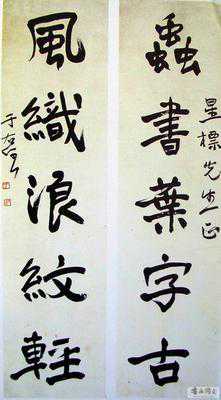 星標先生正
蟲書葉字古
風織浪紋輕
于右任